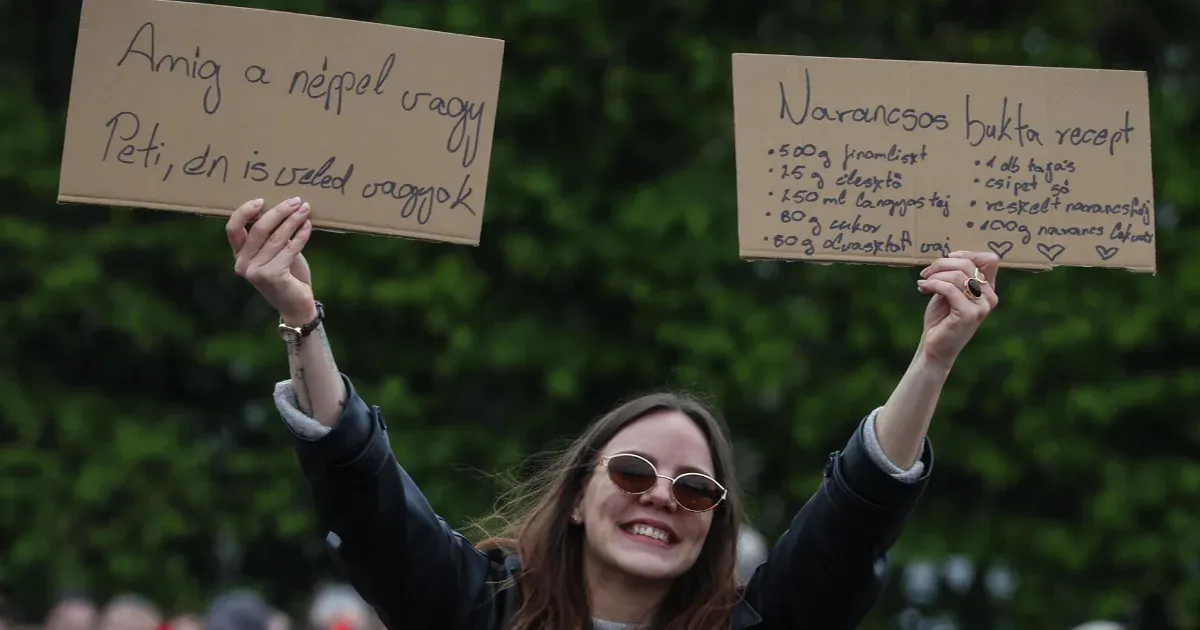 Amíg a néppel vagy
Peti, én is veled vagyok
Narancsos bukta recept
• 500g finomliszt
• 25 g élesztő
• 250 ml langyos tej
• 80g cukor
• 80g olvasztott vaj
• 1 db tojás
• csipet só
• reszelt narancshéj
• 100g narancs lekvár